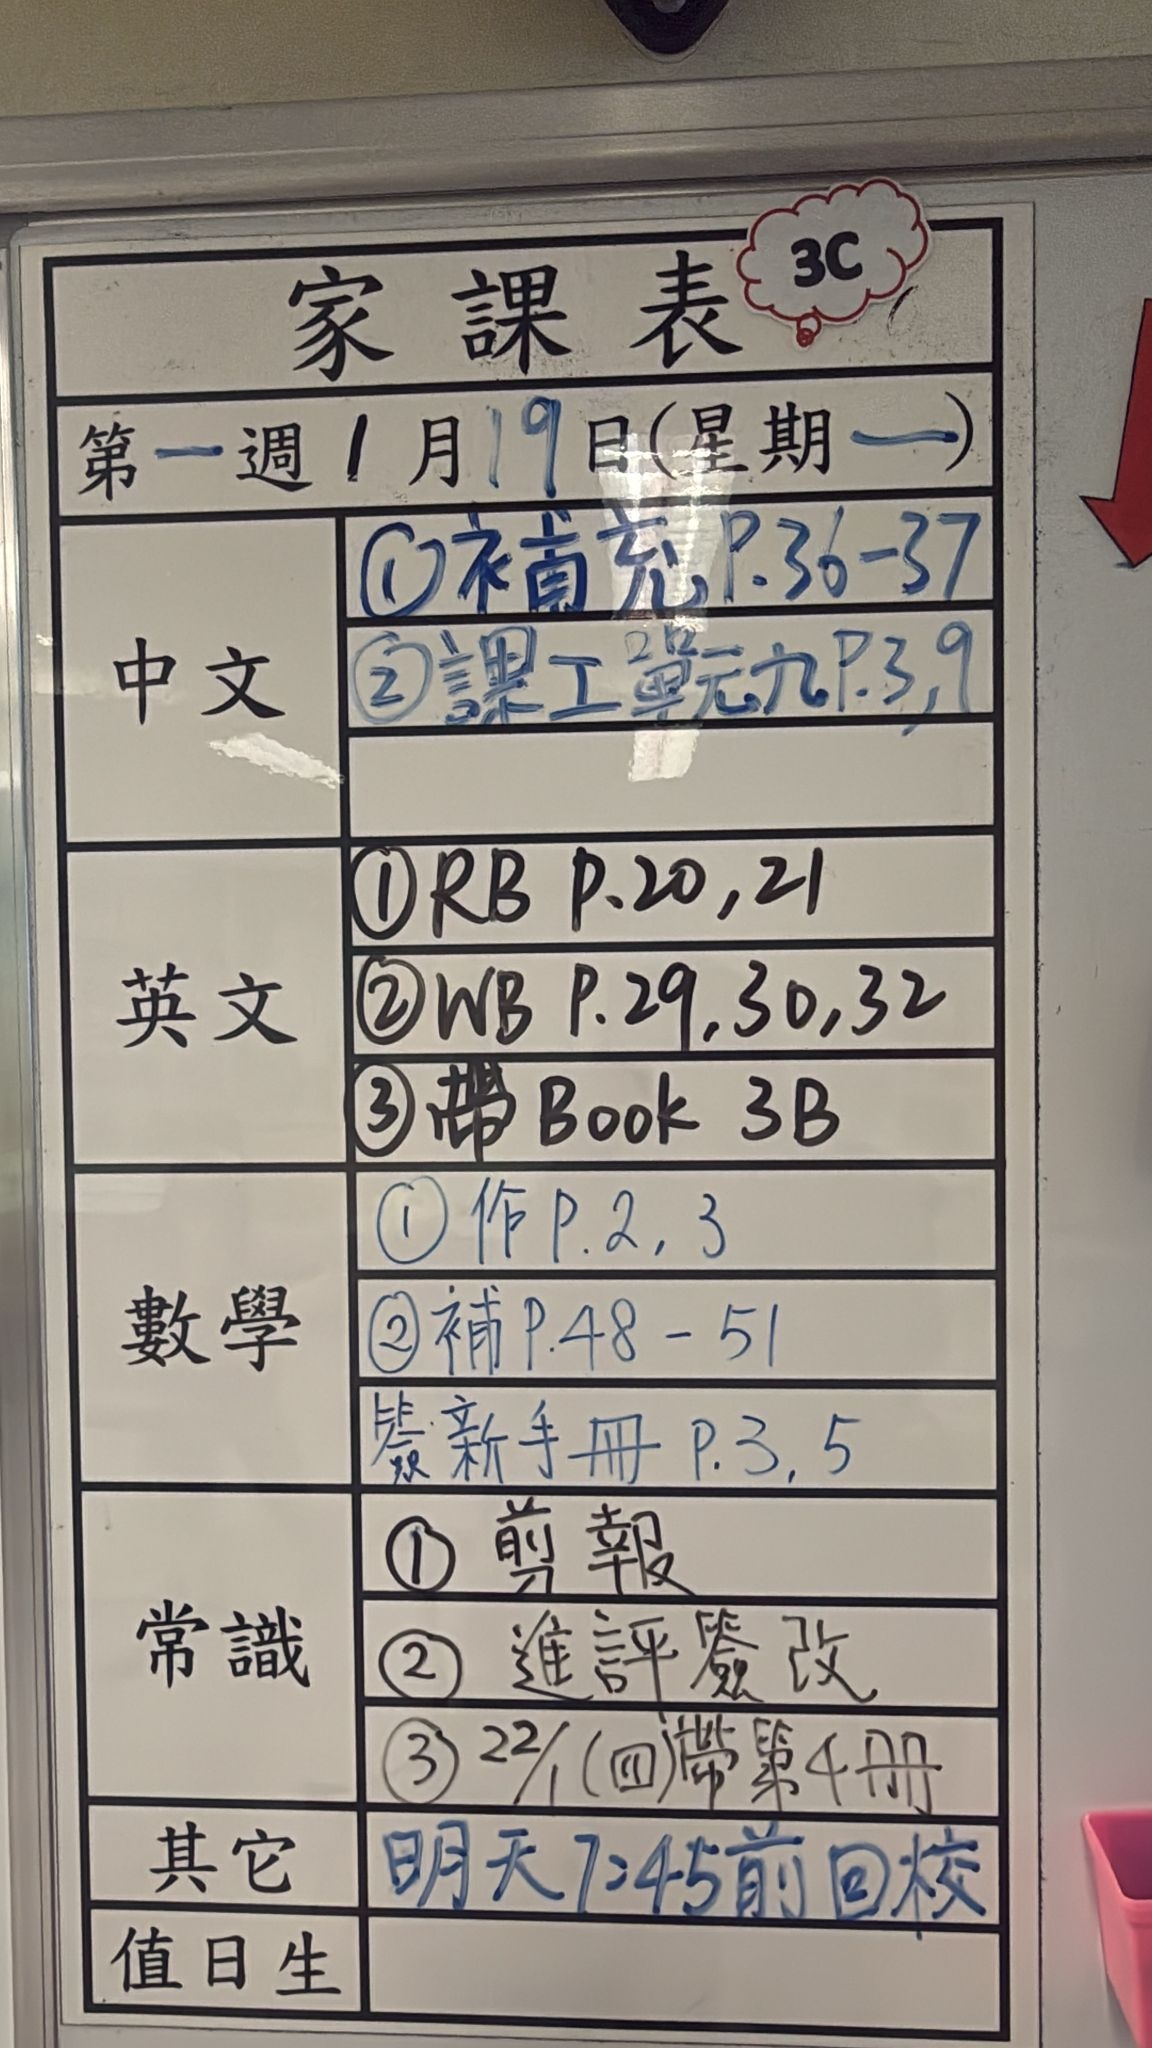 家課表
3C
第一週1月19日(星期一)
中文
①補充P.36-37
②課工單元九P.3,9
英文
①RB P.20,21
②WB P.29,30,32
③帶Book 3B
數學
①作P.2,3
②補P.48-51
簽新手冊P.3,5
常識
①剪報
②進評簽改
③22/1(四)帶第4冊
其它
明天7:45前回校
值日生